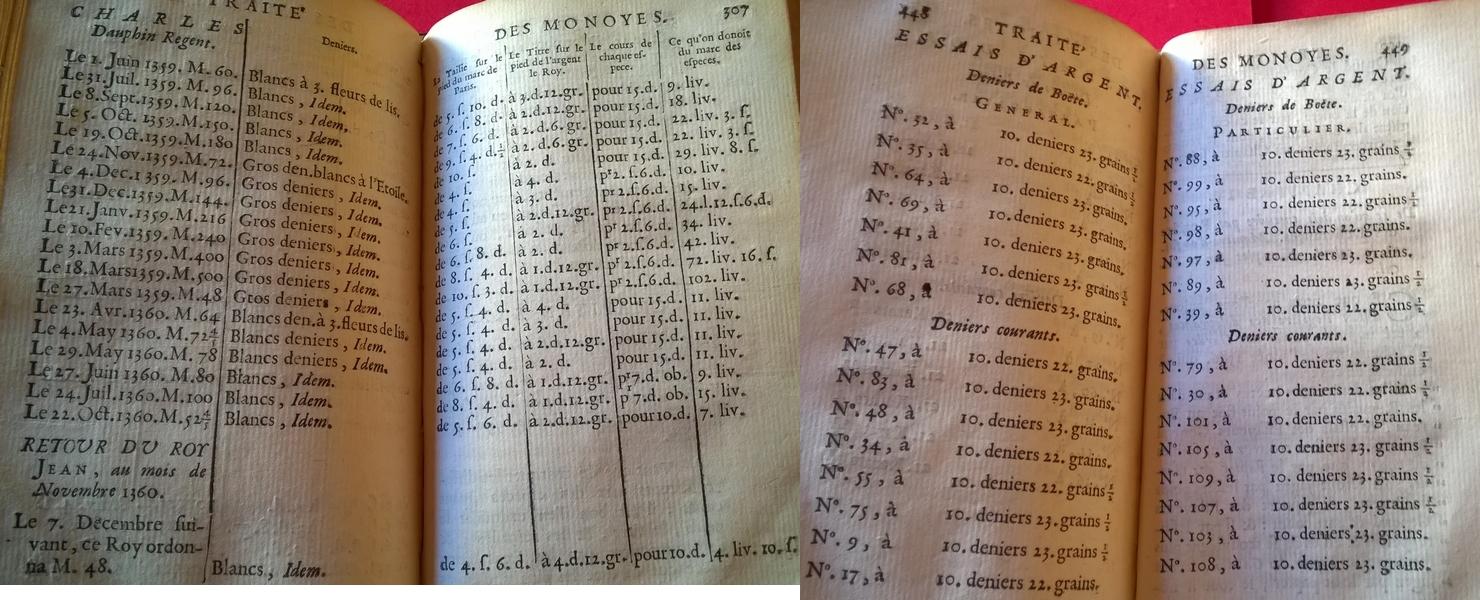 TRAITE'
CHARLES
Dauphin Regent.
Deniers.
Le 1. Juin 1359. M. 60. Blancs à 3. fleurs de lis.
Le 31. Juil. 1359. M. 96. Blancs, Idem.
Le 8. Sept. 1359. M. 120. Blancs, Idem.
Le 5. Oct. 1359. M. 150. Blancs, Idem.
Le 19. Oct. 1359. M. 180 Blancs, Idem.
Le 24. Nov. 1359. M. 72. Gros den. blancs à l'Etoile.
Le 4. Dec. 1359. M. 96. Gros deniers, Idem.
Le 31. Dec. 1359. M. 144. Gros deniers, Idem.
Le 21. Janv. 1359. M. 216 Gros deniers, Idem.
Le 10. Fev. 1359. M. 240 Gros deniers, Idem.
Le 3. Mars 1359. M. 400 Gros deniers, Idem.
Le 18. Mars 1359. M. 500 Gros deniers, Idem.
Le 27. Mars 1359. M. 48 Gros deniers, Idem.
Le 23. Avr. 1360. M. 64 Blancs den. à 3. fleurs de lis.
Le 4. May 1360. M. 72 Blancs deniers, Idem.
Le 29. May 1360. M. 78 Blancs deniers, Idem.
Le 27. Juin 1360. M. 80 Blancs, Idem.
Le 24. Juil. 1360. M. 100 Blancs, Idem.
Le 22. Oct. 1360. M. 52 Blancs, Idem.
RETOUR DU ROY
JEAN, au mois de
Novembre 1360.
Le 7. Décembre sui-
vant, ce Roy ordon-
na M. 48. Blancs, Idem.
DES MONOYES. 307
La Taille sur le pied du marc de Paris.
Le Titre sur le pied de l'argent le Roy.
Le cours de chaque espece.
Ce qu'on donoit du marc des especes.
de 5. ſ. 10. d. à 3.d.12.gr. pour 15.d. 9. liv.
de 6. ſ. 8. d. à 2.d.12.gr. pour 15.d. 18. liv.
de 7. ſ. 6. d. à 2.d.6.gr. pour 15.d. 22. liv. 3. ſ.
de 9. ſ. 4. d.½ à 2.d.6.gr. pour 15.d. 22. liv. 3. ſ.
de 10. ſ. à 2. d. pour 15.d. 29. liv. 8. ſ.
de 4. ſ. à 4. d. pr 2.ſ.6.d. 10. liv.
de 4. ſ. à 3. d. pr 2.ſ.6.d. 15. liv.
de 5. ſ. à 2.d.12.gr. pr 2.ſ.6.d. 24.l.12.ſ.6.d.
de 6. ſ. à 2. d. pr 2.ſ.6.d. 34. liv.
de 6. ſ. 8. d. à 2. d. pr 2.ſ.6.d. 42. liv.
de 8. ſ. 4. d. à 1.d.12.gr. pr 2.ſ.6.d. 72. liv. 16. ſ.
de 10. ſ. 3. d. à 1.d.12.gr. pr 2.ſ.6.d. 102. liv.
de 5. ſ. 4. d. à 4. d. pour 15.d. 11. liv.
de 5. ſ. 4. d. à 3. d. pour 15.d. 11. liv.
de 5. ſ. 4. d. à 2.d.12.gr. pour 15.d. 11. liv.
de 5. ſ. 4. d. à 2. d. pour 15.d. 11. liv.
de 6. ſ. 8. d. à 1.d.12.gr. pr 7.d. ob. 9. liv.
de 8. ſ. 4. d. à 1.d.12.gr. p 7.d. ob. 15. liv.
de 5. ſ. 6. d. à 2.d.12.gr. pour 10.d. 7. liv.
de 4. ſ. 6. d. à 4.d.12.gr. pour 10.d. 4. liv. 10. ſ.
448 TRAITE'
ESSAIS D'ARGENT.
Deniers de Boëte.
GENERAL.
N°. 32, à 10. deniers 23. grains ½
N°. 35, à 10. deniers 22. grains ½
N°. 64, à 10. deniers 23. grains.
N°. 69, à 10. deniers 23. grains.
N°. 41, à 10. deniers 23. grains.
N°. 81, à 10. deniers 23. grains ½
N°. 68, à 10. deniers 23. grains.
Deniers courants.
N°. 47, à 10. deniers 22. grains.
N°. 83, à 10. deniers 23. grains.
N°. 48, à 10. deniers 23. grains.
N°. 34, à 10. deniers 22. grains.
N°. 55, à 10. deniers 22. grains ½
N°. 75, à 10. deniers 23. grains ½
N°. 9, à 10. deniers 23. grains ½
N°. 17, à 10. deniers 22. grains.
DES MONOYES. 449
ESSAIS D'ARGENT.
Deniers de Boëte.
PARTICULIER.
N°. 88, à 10. deniers 23. grains ½
N°. 99, à 10. deniers 22. grains.
N°. 95, à 10. deniers 22. grains ½
N°. 98, à 10. deniers 22. grains.
N°. 97, à 10. deniers 23. grains.
N°. 89, à 10. deniers 23. grains ½
N°. 39, à 10. deniers 22. grains ½
Deniers courants.
N°. 79, à 10. deniers 22. grains ½
N°. 30, à 10. deniers 23. grains ½
N°. 101, à 10. deniers 22. grains.
N°. 105, à 10. deniers 23. grains ½
N°. 109, à 10. deniers 23. grains ½
N°. 107, à 10. deniers 23. grains ½
N°. 103, à 10. deniers 23. grains.
N°. 108, à 10. deniers 23. grains.